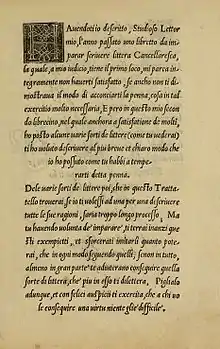 HAuendoti io descritto, Studioso Lettor
mio, l'anno passato uno libretto da im=
parar scriuere littera Cancellaresca,
la quale, a mio iudicio, tiene il primo loco, mi parca in
tegramente non hauerti satisfatto, se ancho non ti di=
mostraua il modo di acconciarti la penna, cosa in tal
exercitio molto necessaria, E pero in questo mio secon
do librecino, nel quale anchora a satisfatione de molti,
ho posto alcune uarie sorti de littere (come tu uederai)
ti ho uoluto descriuere al piu breue et chiaro modo che
io ho possuto come tu habbi a tempe=
rarti detta penna.
Dele uarie sorti de littere poi, che in questo Tratta=
tello trouerai, se io ti uolessi ad una per una descriuere
tutte le sue ragioni, saria troppo longo processo, Ma
tu hauendo uolunta de imparare, ti terrai inanzi que
sti exempietti, et sforcerati imitarli quanto pote=
rai, che in ogni modo seguendo quelli, se non in tutto,
almeno in gran parte te aduterano conseguire quella
sorte di littera, che piu in esso ti dilettera, Piglialo
adunque, et con felici auspicii ti exercita, che a chi uo
le conseguire una uirtu niente gl'è difficile.